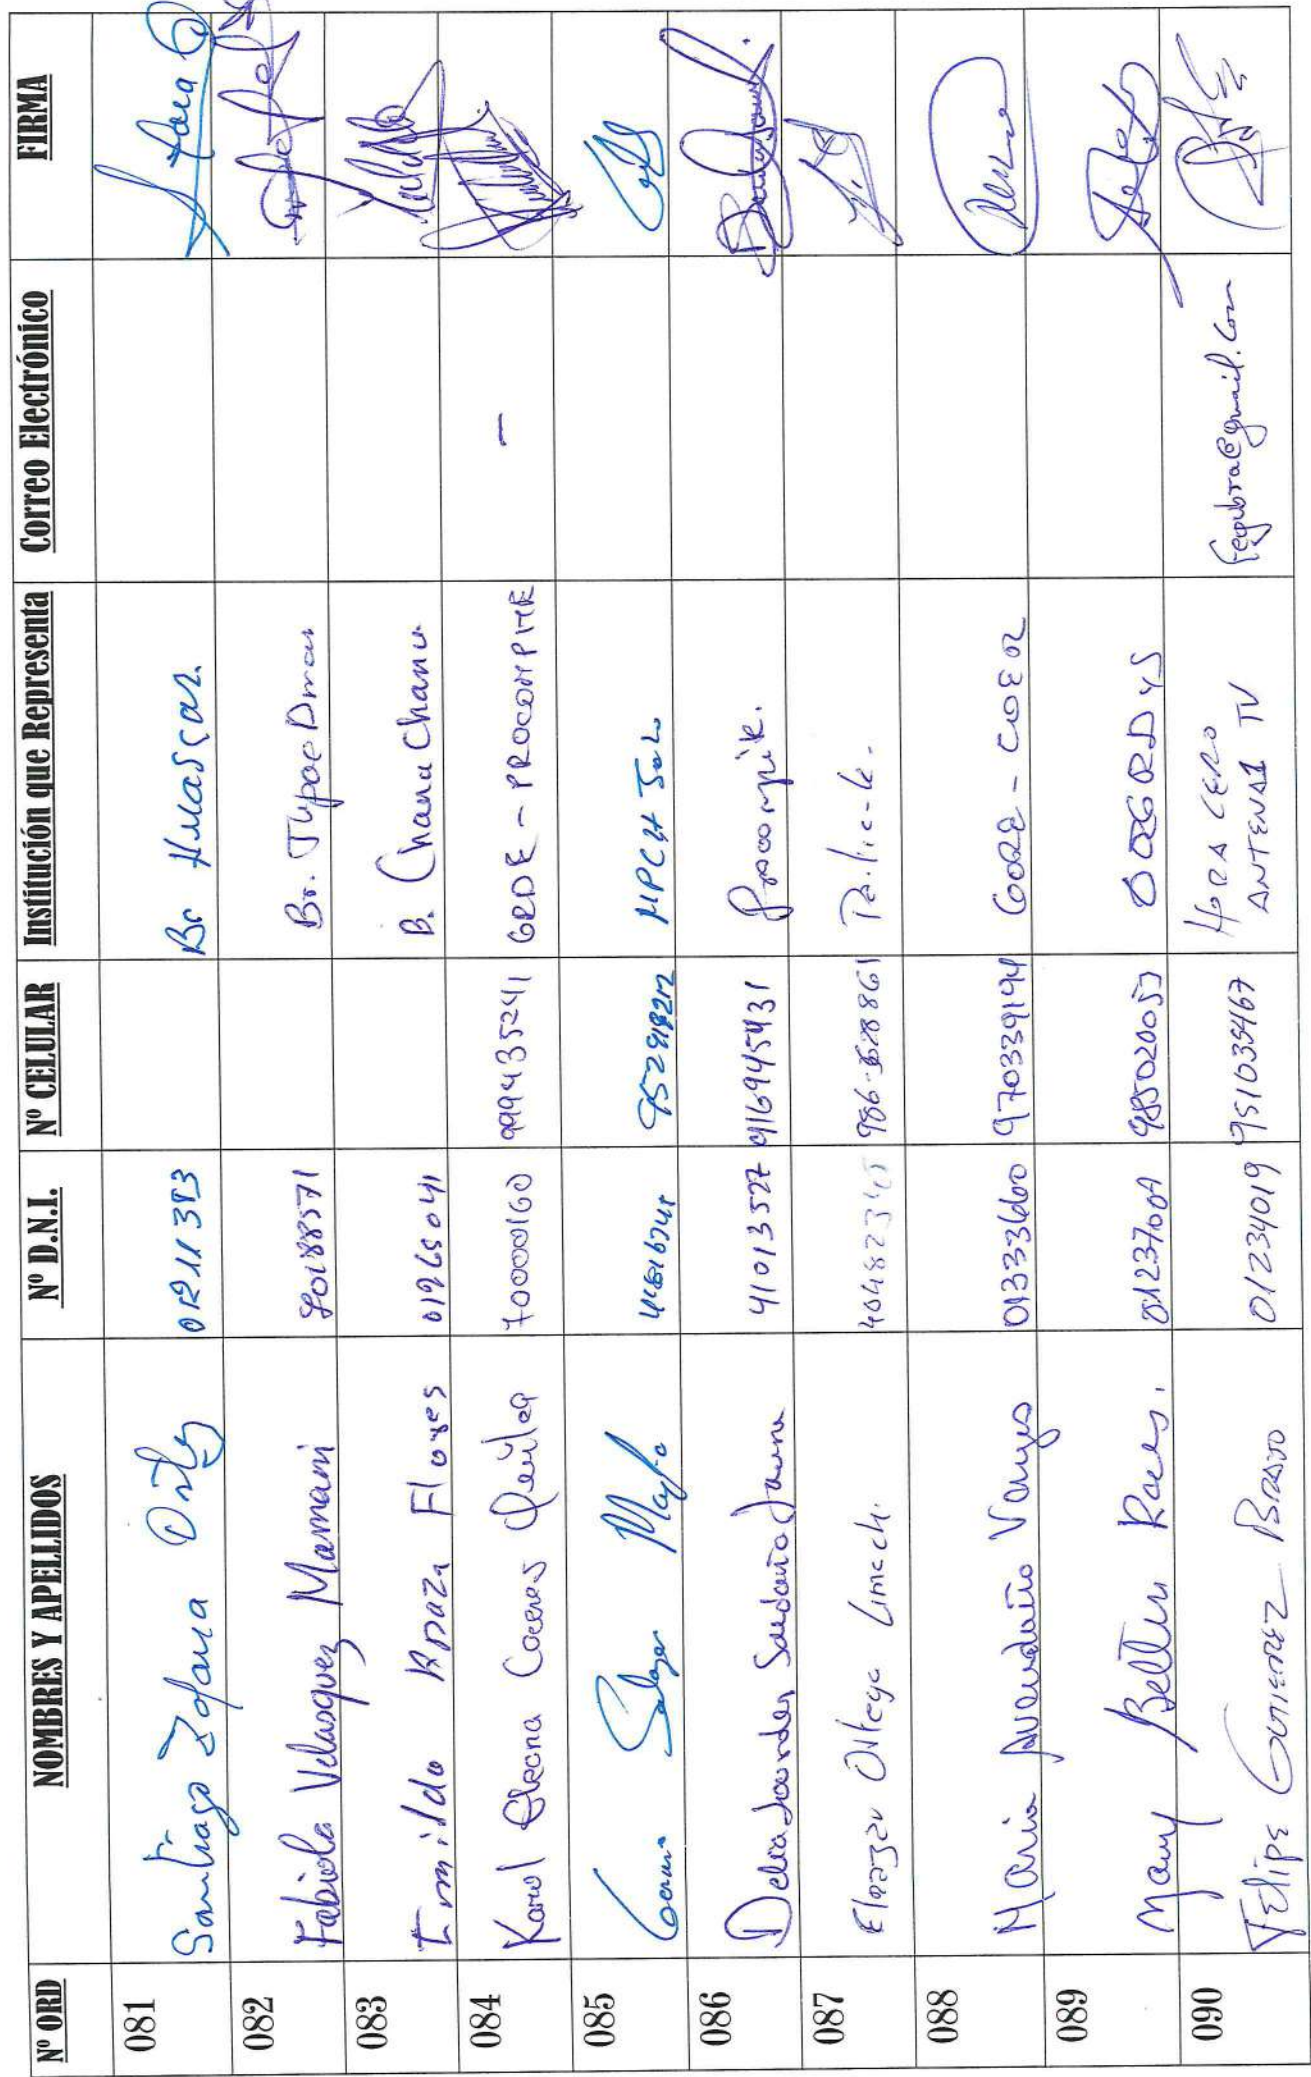 Nº ORD NOMBRES Y APELLIDOS Nº D.N.I. Nº CELULAR Institución que Representa Correo Electrónico FIRMA
081 Santiago Zofana Ortiz Br Huascar.
082 Fabiola Velasquez Mamani 80188571 Br. Tupac Amaru
083 Ermildo Apaza Flores 01265041 B. Chanu Chanu
084 Karol Elena Caceres Quilca 70000160 999435241 GRDE - PROCOMPITE —
085 Salazar
086 Delia Lourdes 41013527 916945431 Procompite.
087 Eleazar Ortega Limachi 986-628861
088 Maria Avendaño Vargas 01333600 970339194 GORE - COER
089 Many Beltran 01237009 985020053 OOGRD y S
090 Felipe Gutierrez Bravo 01234019 951035467 HORA CERO fegubra@gmail.com
ANTENA1 TV